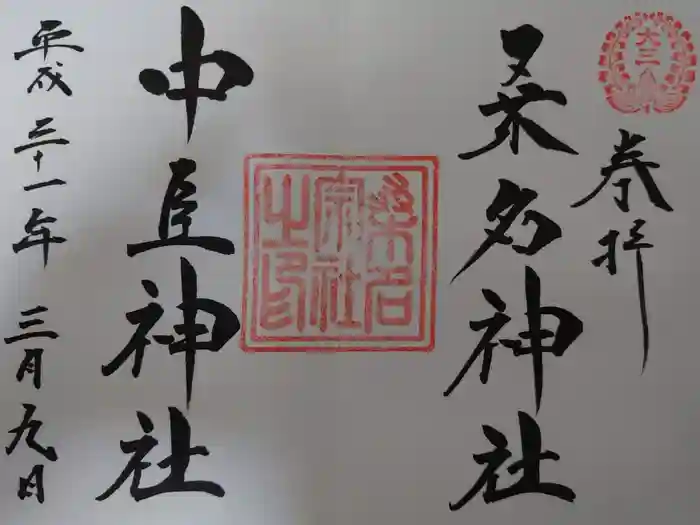 奉拝
桑名神社
桑名
宗社
之印
中臣神社
平成三十一年三月九日